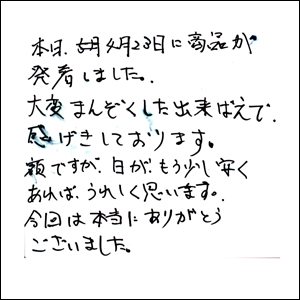 本日、4月23日に商品が
発着しました。
大変まんぞくした出来ばえで、
感げきしております。
額ですが、日が、もう少し安く
あれば、うれしく思います。
今回は本当にありがとう
ございました。